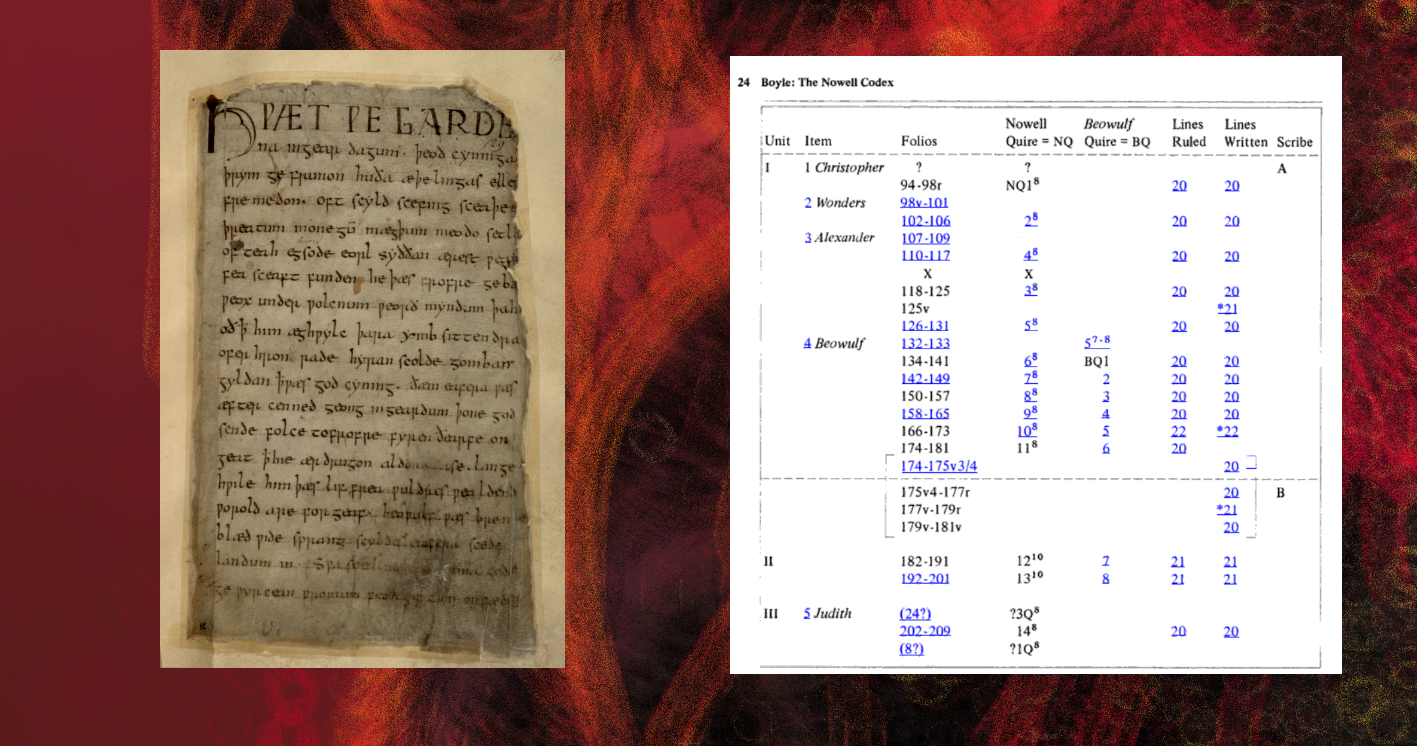 HǷÆT ǷE GARDE
na ingear dagum. þeod cyninga
þrym ge frunon huða æþelingas elle
fremedon. oft scyld scefing sceaþe
þreatum monegū mægþum meodo setla
of teah egsode eorl syððan ærest ƿear
fea sceaft funden he þæs frofre geba
ƿeox under ƿolcnum ƿeorð myndum þah
oð ꝥ him æghƿylc þara ymb sittendra
ofer hron rade hyran scolde gomban
gyldan ꝥ ƿæs god cyning. ðæm eafera ƿæs
æfter cenned geong ingeardum þone god
sende folce tofrofre fyren ðearfe on
geat ꝥ hie ær drugon aldor ase. lange
hƿile him þæs lif frea ƿuldres ƿealdend
ƿorold are for geaf. beoƿulf ƿæs breme
blæd ƿide sprang scyldes eafera scede
landum in. Sƿa sceal guma gode
ge ƿyrcean fromum feoh giftum on fæder
24 Boyle: The Nowell Codex
Unit Item Folios Nowell Quire = NQ Beowulf Quire = BQ Lines Ruled Lines Written Scribe
I 1 Christopher ? ? A
94-98r NQ1⁸ 20 20
2 Wonders 98v-101
102-106 2⁸ 20 20
3 Alexander 107-109
110-117 4⁸ 20 20
X X
118-125 3⁸ 20 20
125v *21
126-131 5⁸ 20 20
4 Beowulf 132-133 5⁷·⁸
134-141 6⁸ BQ1 20 20
142-149 7⁸ 2 20 20
150-157 8⁸ 3 20 20
158-165 9⁸ 4 20 20
166-173 10⁸ 5 22 *22
174-181 11⁸ 6 20
174-175v3/4 20
175v4-177r 20 B
177v-179r *21
179v-181v 20
II 182-191 12¹⁰ 7 21 21
192-201 13¹⁰ 8 21 21
III 5 Judith (24?) ?3Q⁸
202-209 14⁸ 20 20
(8?) ?1Q⁸